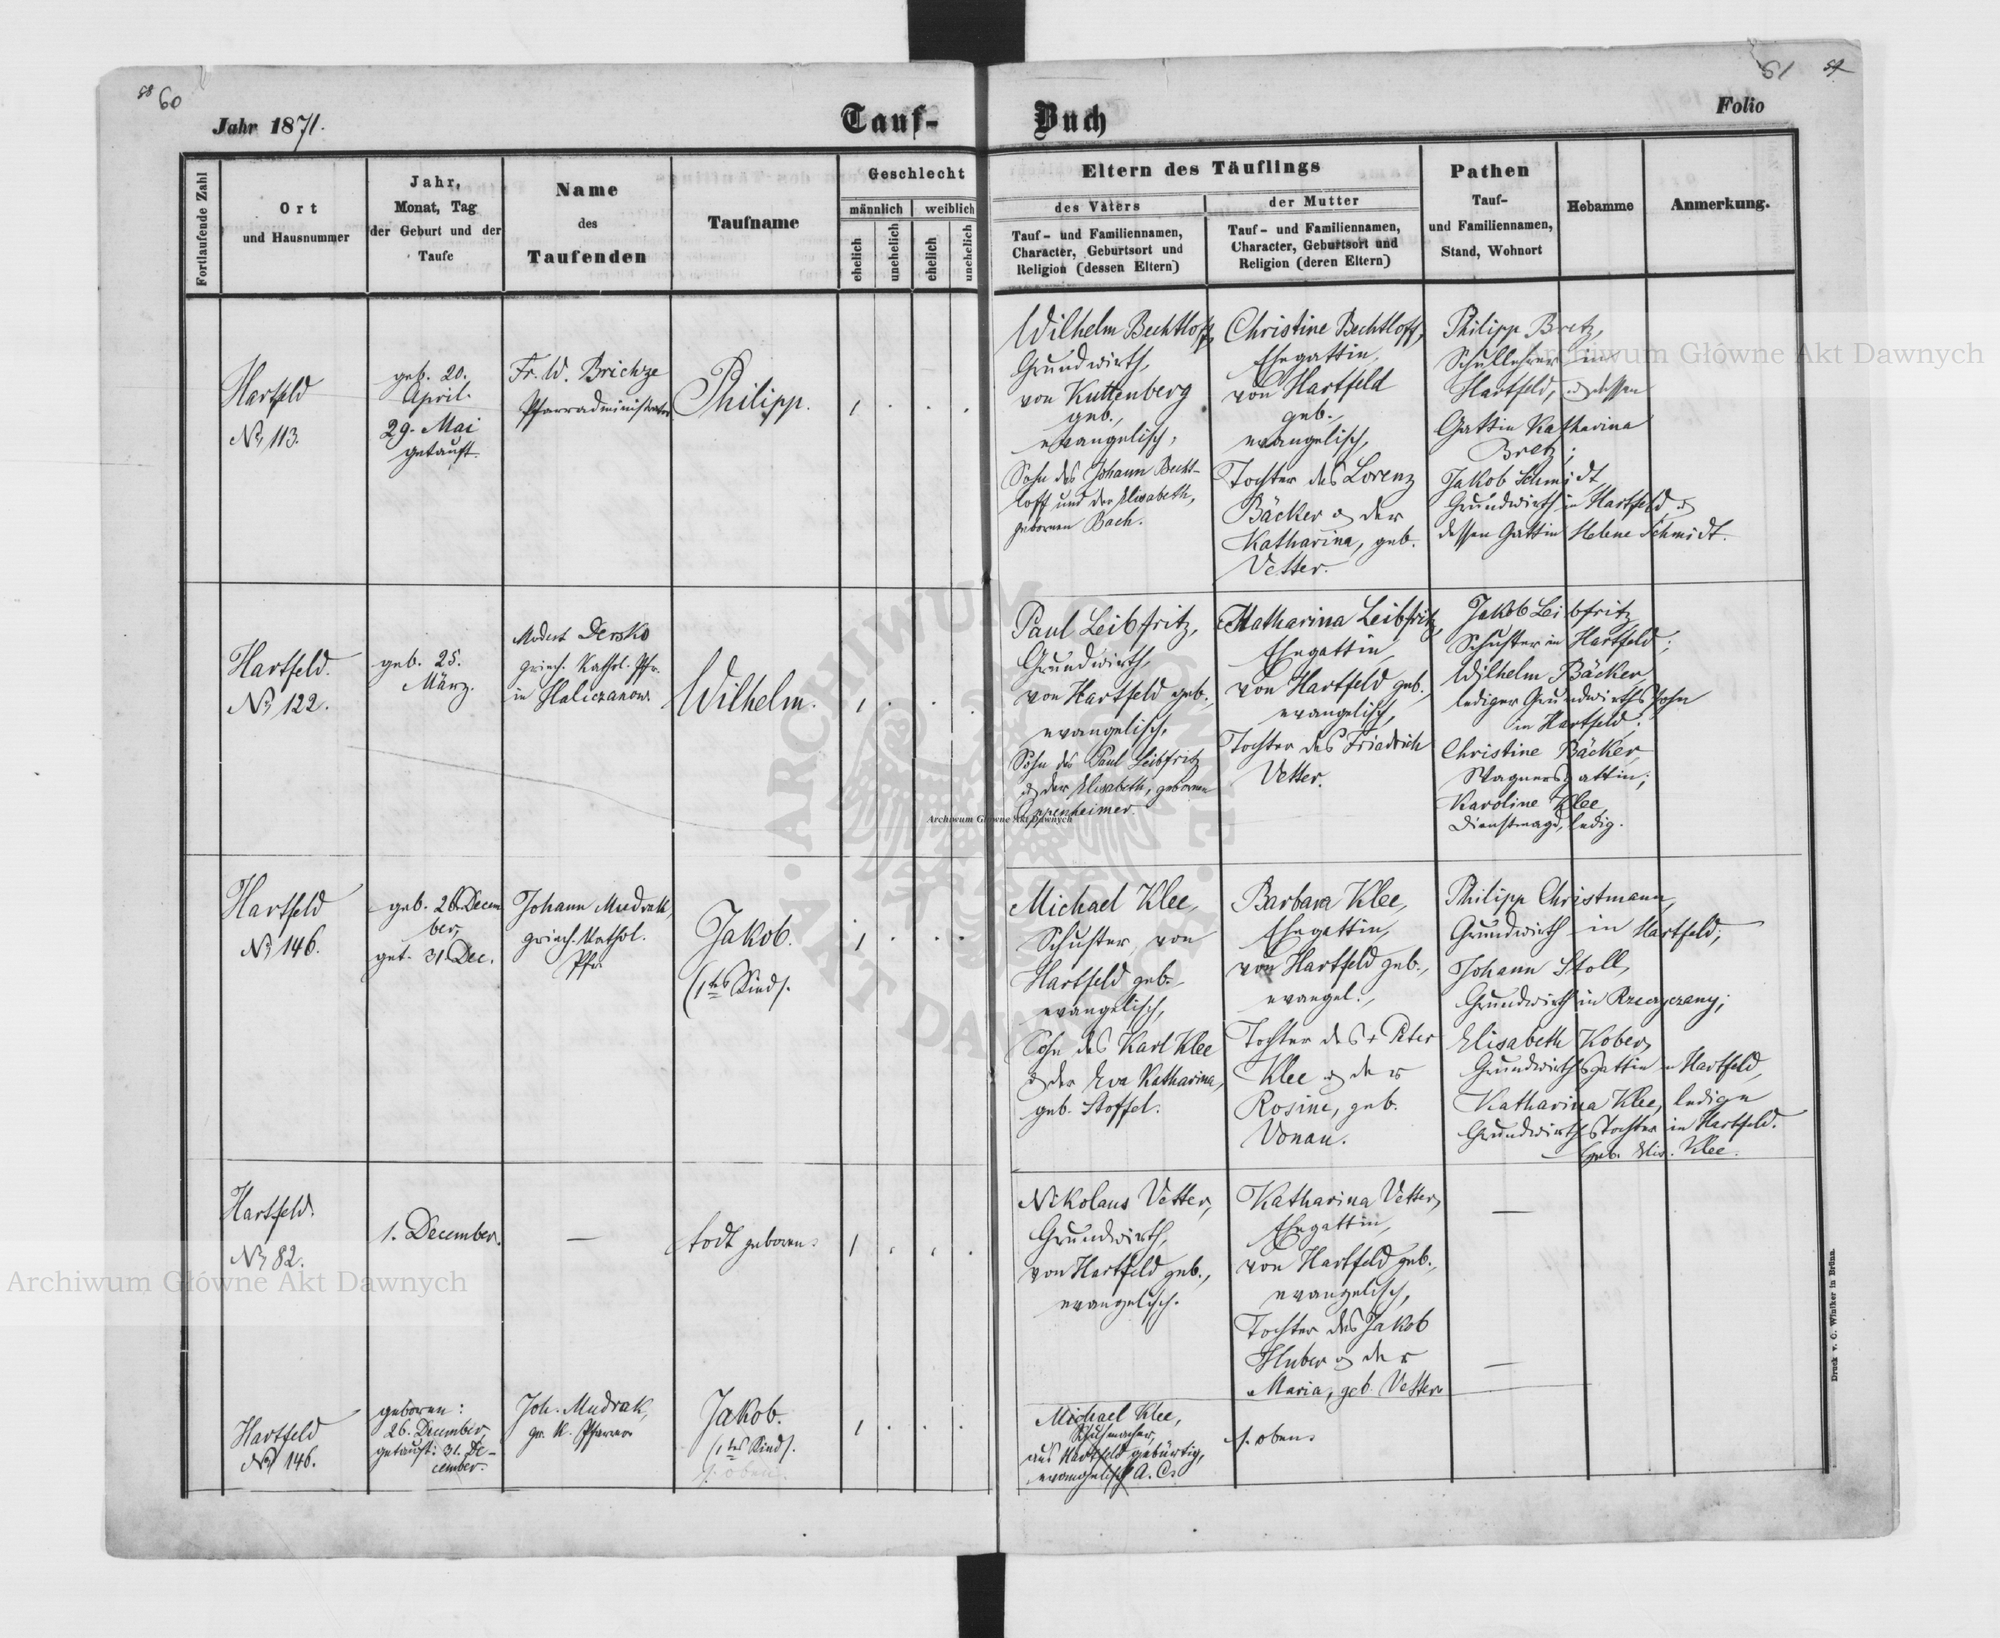 58 60
Jahr 1871.
Tauf-
Buch
61
Folio
Fortlaufende Zahl
Ort
und Hausnummer
Jahr,
Monat, Tag
der Geburt und der
Taufe
Name
des
Taufenden
Taufname
Geschlecht
männlich
weiblich
ehelich
unehelich
ehelich
unehelich
Eltern des Täuflings
des Vaters
Tauf- und Familiennamen,
Character, Geburtsort und
Religion (dessen Eltern)
der Mutter
Tauf- und Familiennamen,
Character, Geburtsort und
Religion (deren Eltern)
Pathen
Tauf-
und Familiennamen,
Stand, Wohnort
Hebamme
Anmerkung.
Hartfeld
No 113.
geb. 20.
April.
29. Mai
getauft.
Fr. W. Brichze
Pfarradministrator
Philipp.
1 . . .
Wilhelm Bechtloff,
Grundwirth,
von Kuttenberg
geb.,
evangelisch,
Sohn des Johann Becht-
loff und der Elisabeth,
gebornen Bach.
Christine Bechtloff,
Ehegattin,
von Hartfeld
geb.,
evangelisch,
Tochter des Lorenz
Bäcker & der
Katharina, geb.
Vetter.
Philipp Bretz,
Schullehrer in
Hartfeld, & dessen
Gattin Katharina
Bretz;
Jakob Schmidt
Grundwirth in Hartfeld &
dessen Gattin Helene Schmidt.
Hartfeld.
No 122.
geb. 25.
März.
Modest Dersko
griech. Kathol. Pfr.
in Haliczanow
Wilhelm.
1 . . .
Paul Leibfritz,
Grundwirth,
von Hartfeld geb.,
evangelisch,
Sohn des Paul Leibfritz
& der Elisabeth, gebornen
Oppenheimer.
Katharina Leibfritz,
Ehegattin,
von Hartfeld geb.,
evangelisch,
Tochter des Friedrich
Vetter.
Jakob Leibfritz
Schuster in Hartfeld;
Wilhelm Bäcker,
lediger Grundwirthssohn
in Hartfeld;
Christine Bäcker,
Wagnersgattin;
Karoline Klee,
Dienstmagd, ledig.
Hartfeld
No 146.
geb. 26. Decem
ber,
get. 31. Dec.
Johann Mudrak,
griech. Kathol.
Pfr.
Jakob.
(1tes Kind).
1 . . .
Michael Klee,
Schuster von
Hartfeld geb.
evangelisch,
Sohn des Karl Klee
& der Eva Katharina,
geb. Stoffel.
Barbara Klee,
Ehegattin,
von Hartfeld geb.,
evangel.,
Tochter des + Peter
Klee & der
Rosine, geb.
Vonau.
Philipp Christmann,
Grundwirth in Hartfeld;
Johann Stoll,
Grundwirth in Rzeczyczany;
Elisabeth Kober,
Grundwirthsgattin in Hartfeld,
Katharina Klee, ledige
Grundwirthstochter in Hartfeld.
Heb. Elis. Klee.
Hartfeld.
No 82.
1. December.
—
todt geboren.
1 . . .
Nikolaus Vetter,
Grundwirth,
von Hartfeld geb.,
evangelisch.
Katharina Vetter,
Ehegattin,
von Hartfeld geb.,
evangelisch,
Tochter des Jakob
Huber & der
Maria, geb. Vetter
—
—
Hartfeld
No 146.
geboren:
26. December,
getauft: 31. De-
cember.
Joh. Mudrak,
gr. K. Pfarrer
Jakob.
(1tes Kind).
s. oben.
1 . . .
Michael Klee,
Schuhmacher,
aus Hartfeld gebürtig,
evangelisch A. C.
s. oben.
Druck v. C. Winiker in Brünn.
Archiwum Główne Akt Dawnych
Archiwum Główne Akt Dawnych
Archiwum Główne Akt Dawnych
ARCHIWUM GŁÓWNE AKT DAWNYCH